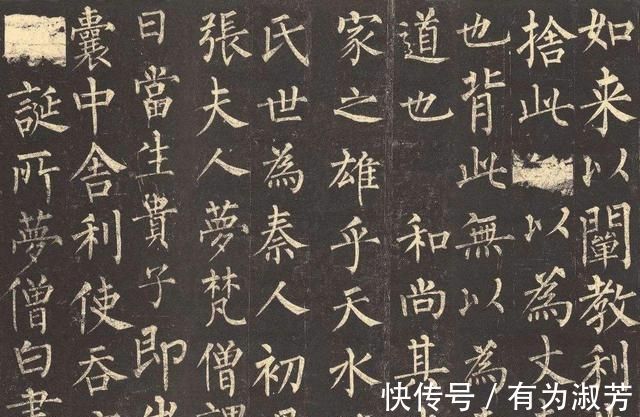 如来以闡教利
捨此以為丈
也背此無以為
道也 和尚其
家之雄乎天水
氏世為秦人初
張夫人夢梵僧謂
曰當生貴子即出
囊中舍利使吞
誕所夢僧白晝
快传号 / 有为淑芳